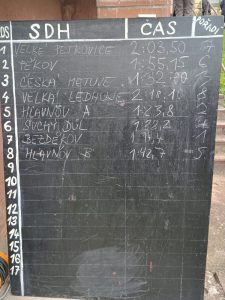 DS SDH ČAS POŘADÍ
1 VELKÉ PETROVICE 2:03,50 7
2 PĚKOV 1:55,15 6
3 ČESKÁ METUJE 1:32,70
4 VELKÁ LEDHUJE 2:18,10 8
5 HLAVŇOV A 1:23,8
6 SUCHÝ DŮL
7 BEZDĚKOV
8 HLAVŇOV B 1:42,7 5
9
10
11
12
13
14
15
16
17